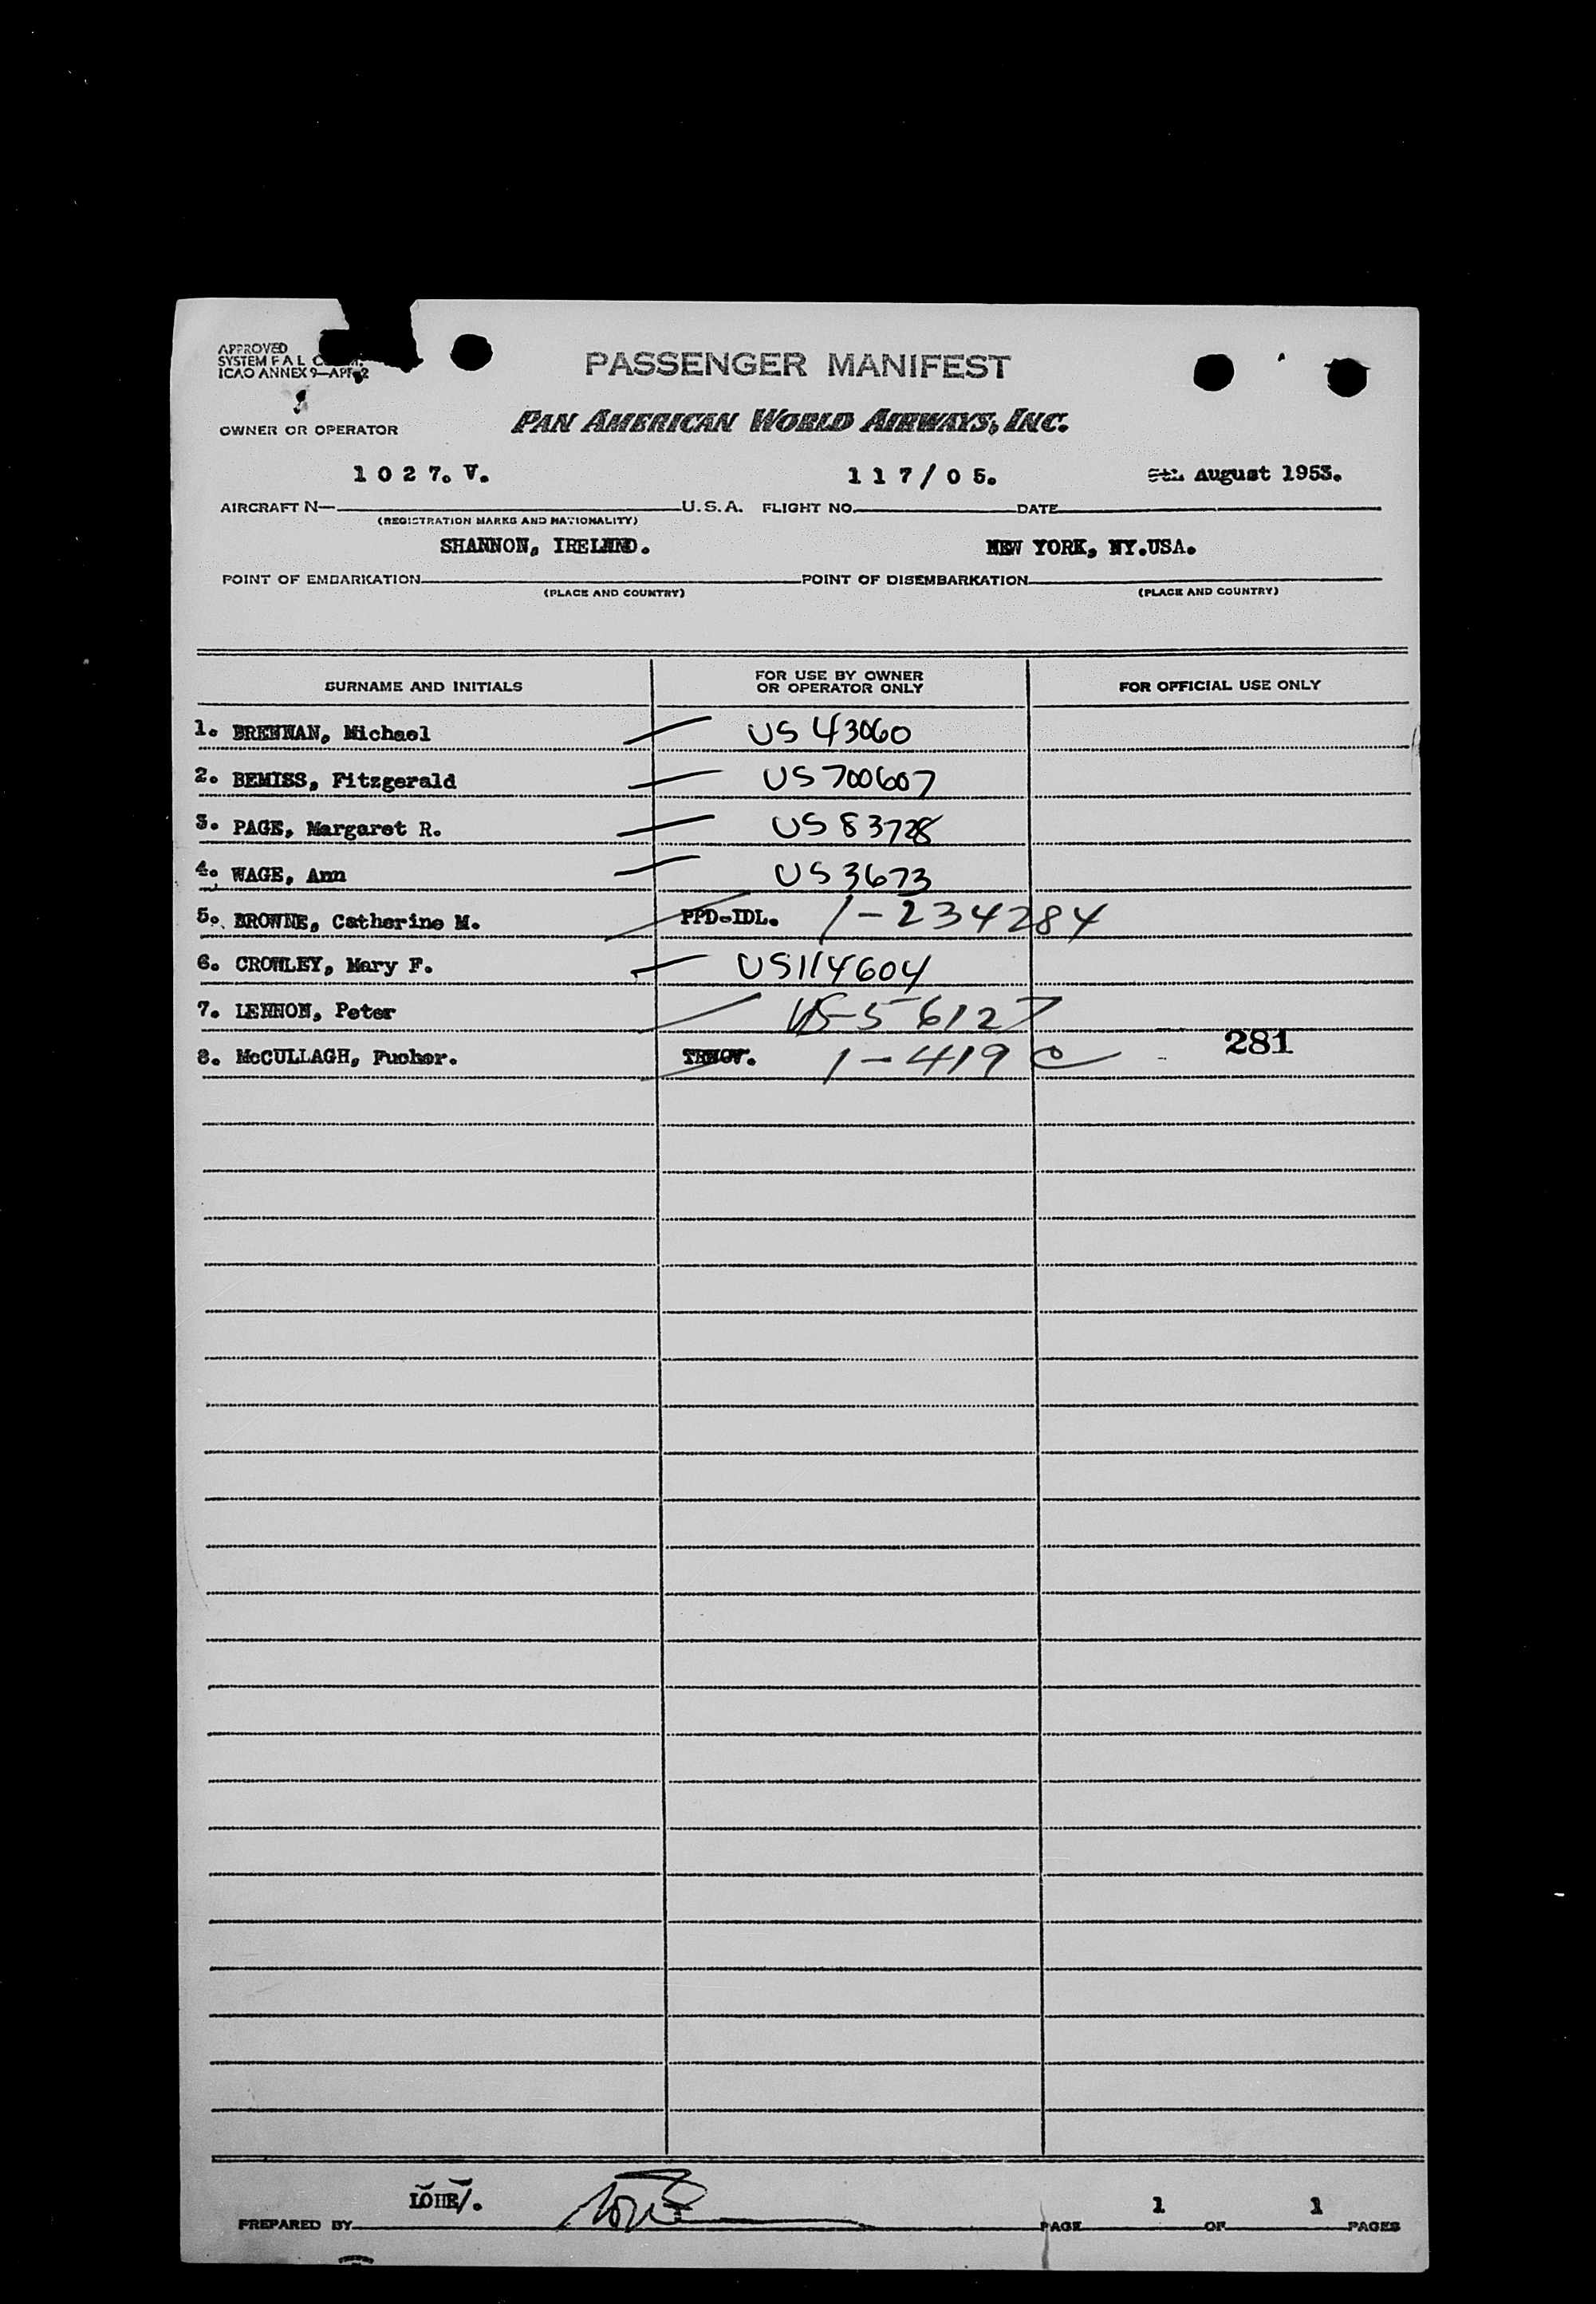 APPROVED
SYSTEM F A L
ICAO ANNEX 9—APP 2
PASSENGER MANIFEST
OWNER OR OPERATOR
PAN AMERICAN WORLD AIRWAYS, INC.
1 0 2 7. V.
1 1 7 / 0 5.
5th August 1953.
AIRCRAFT N— U.S.A. FLIGHT NO. DATE
(REGISTRATION MARKS AND NATIONALITY)
SHANNON, IRELAND.
NEW YORK, NY.USA.
POINT OF EMBARKATION POINT OF DISEMBARKATION
(PLACE AND COUNTRY) (PLACE AND COUNTRY)
SURNAME AND INITIALS
FOR USE BY OWNER
OR OPERATOR ONLY
FOR OFFICIAL USE ONLY
1. BRENNAN, Michael US 43060
2. BEMISS, Fitzgerald US 700607
3. PAGE, Margaret R. US 83728
4. WAGE, Ann US 3673
5. BROWNE, Catherine M. PPD-IDL. 1-234284
6. CROWLEY, Mary F. US114604
7. LENNON, Peter US-56127
8. McCULLAGH, 1-419 281
PREPARED BY
PAGE 1 OF 1 PAGES